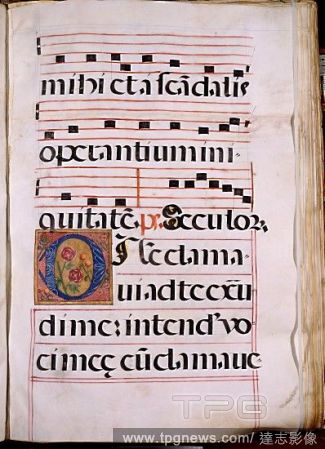 mihi et a scādalis
operantium ini-
quitatē. ps. Seculor;
Dñe clama-
ui ad te exau
di me: intend' vo
ci meę cū clamaue
TPG
www.tpgnews.com / 達志影像